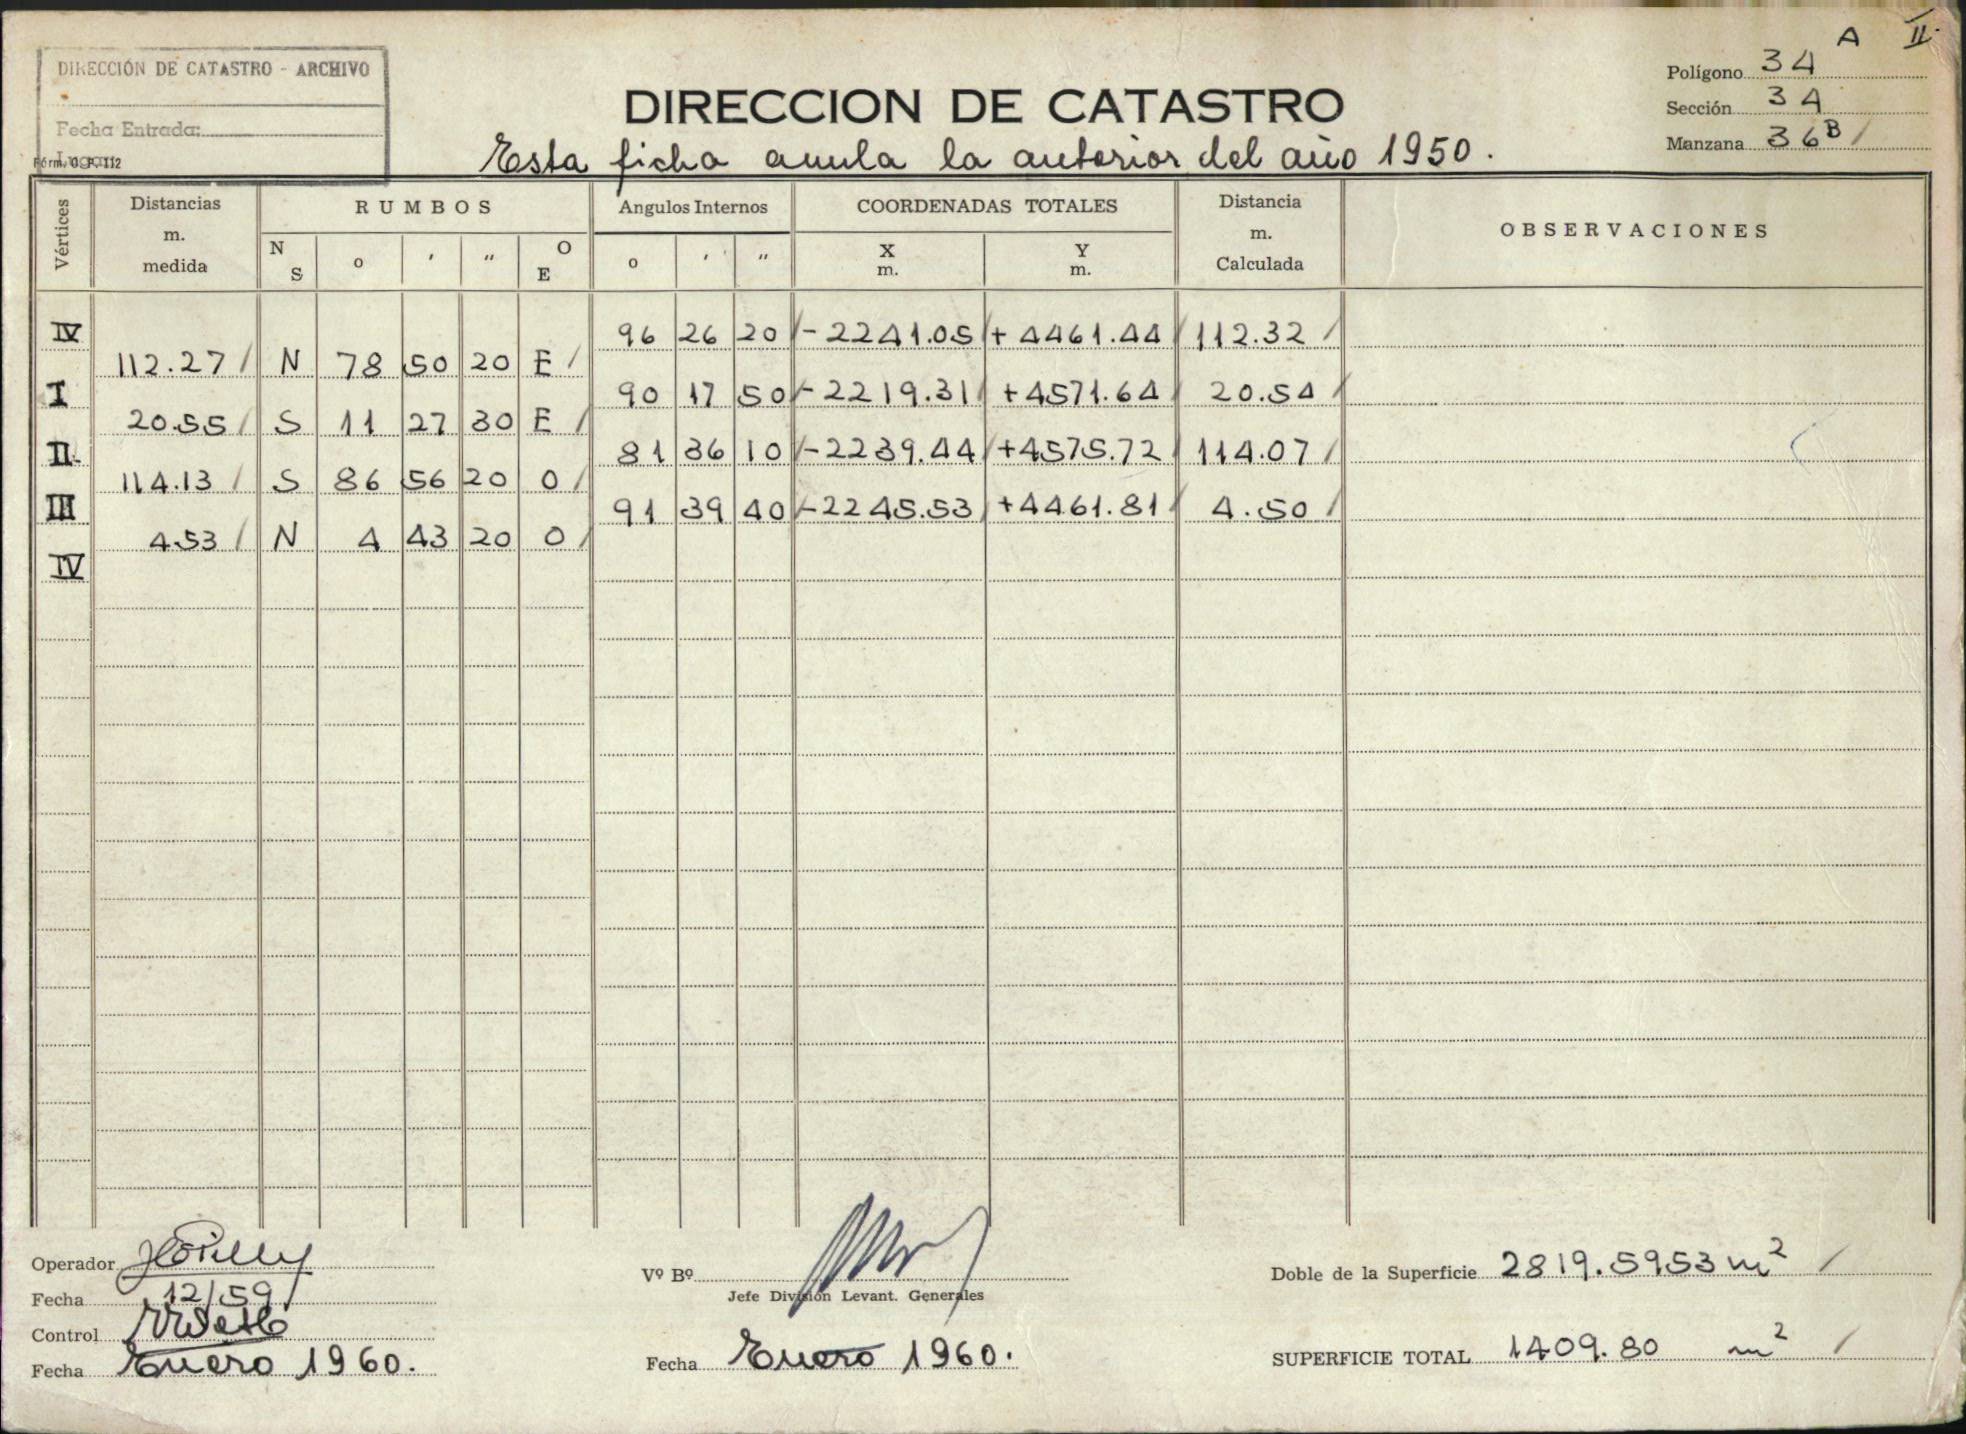 A II
DIRECCIÓN DE CATASTRO - ARCHIVO
Fecha Entrada:
Lugar:
Fórm. O. P. 112
DIRECCION DE CATASTRO
Esta ficha anula la anterior del año 1950.
Polígono 34
Sección 34
Manzana 36B
Vértices
Distancias m. medida
RUMBOS
N S o ' " O E
Angulos Internos
o ' "
COORDENADAS TOTALES
X m. Y m.
Distancia m. Calculada
OBSERVACIONES
IV 96 26 20 - 2241.05 + 4461.44 112.32
112.27 N 78 50 20 E
I 90 17 50 - 2219.31 +4571.64 20.54
20.55 S 11 27 30 E
II 81 36 10 - 2239.44 +4575.72 114.07
114.13 S 86 56 20 O
III 91 39 40 - 2245.53 +4461.81 4.50
4.53 N 4 43 20 O
IV
Operador
Fecha 12/59
Control
Fecha Enero 1960.
Vº Bº
Jefe División Levant. Generales
Fecha Enero 1960.
Doble de la Superficie 2819.5953 m2
SUPERFICIE TOTAL 1409.80 m2